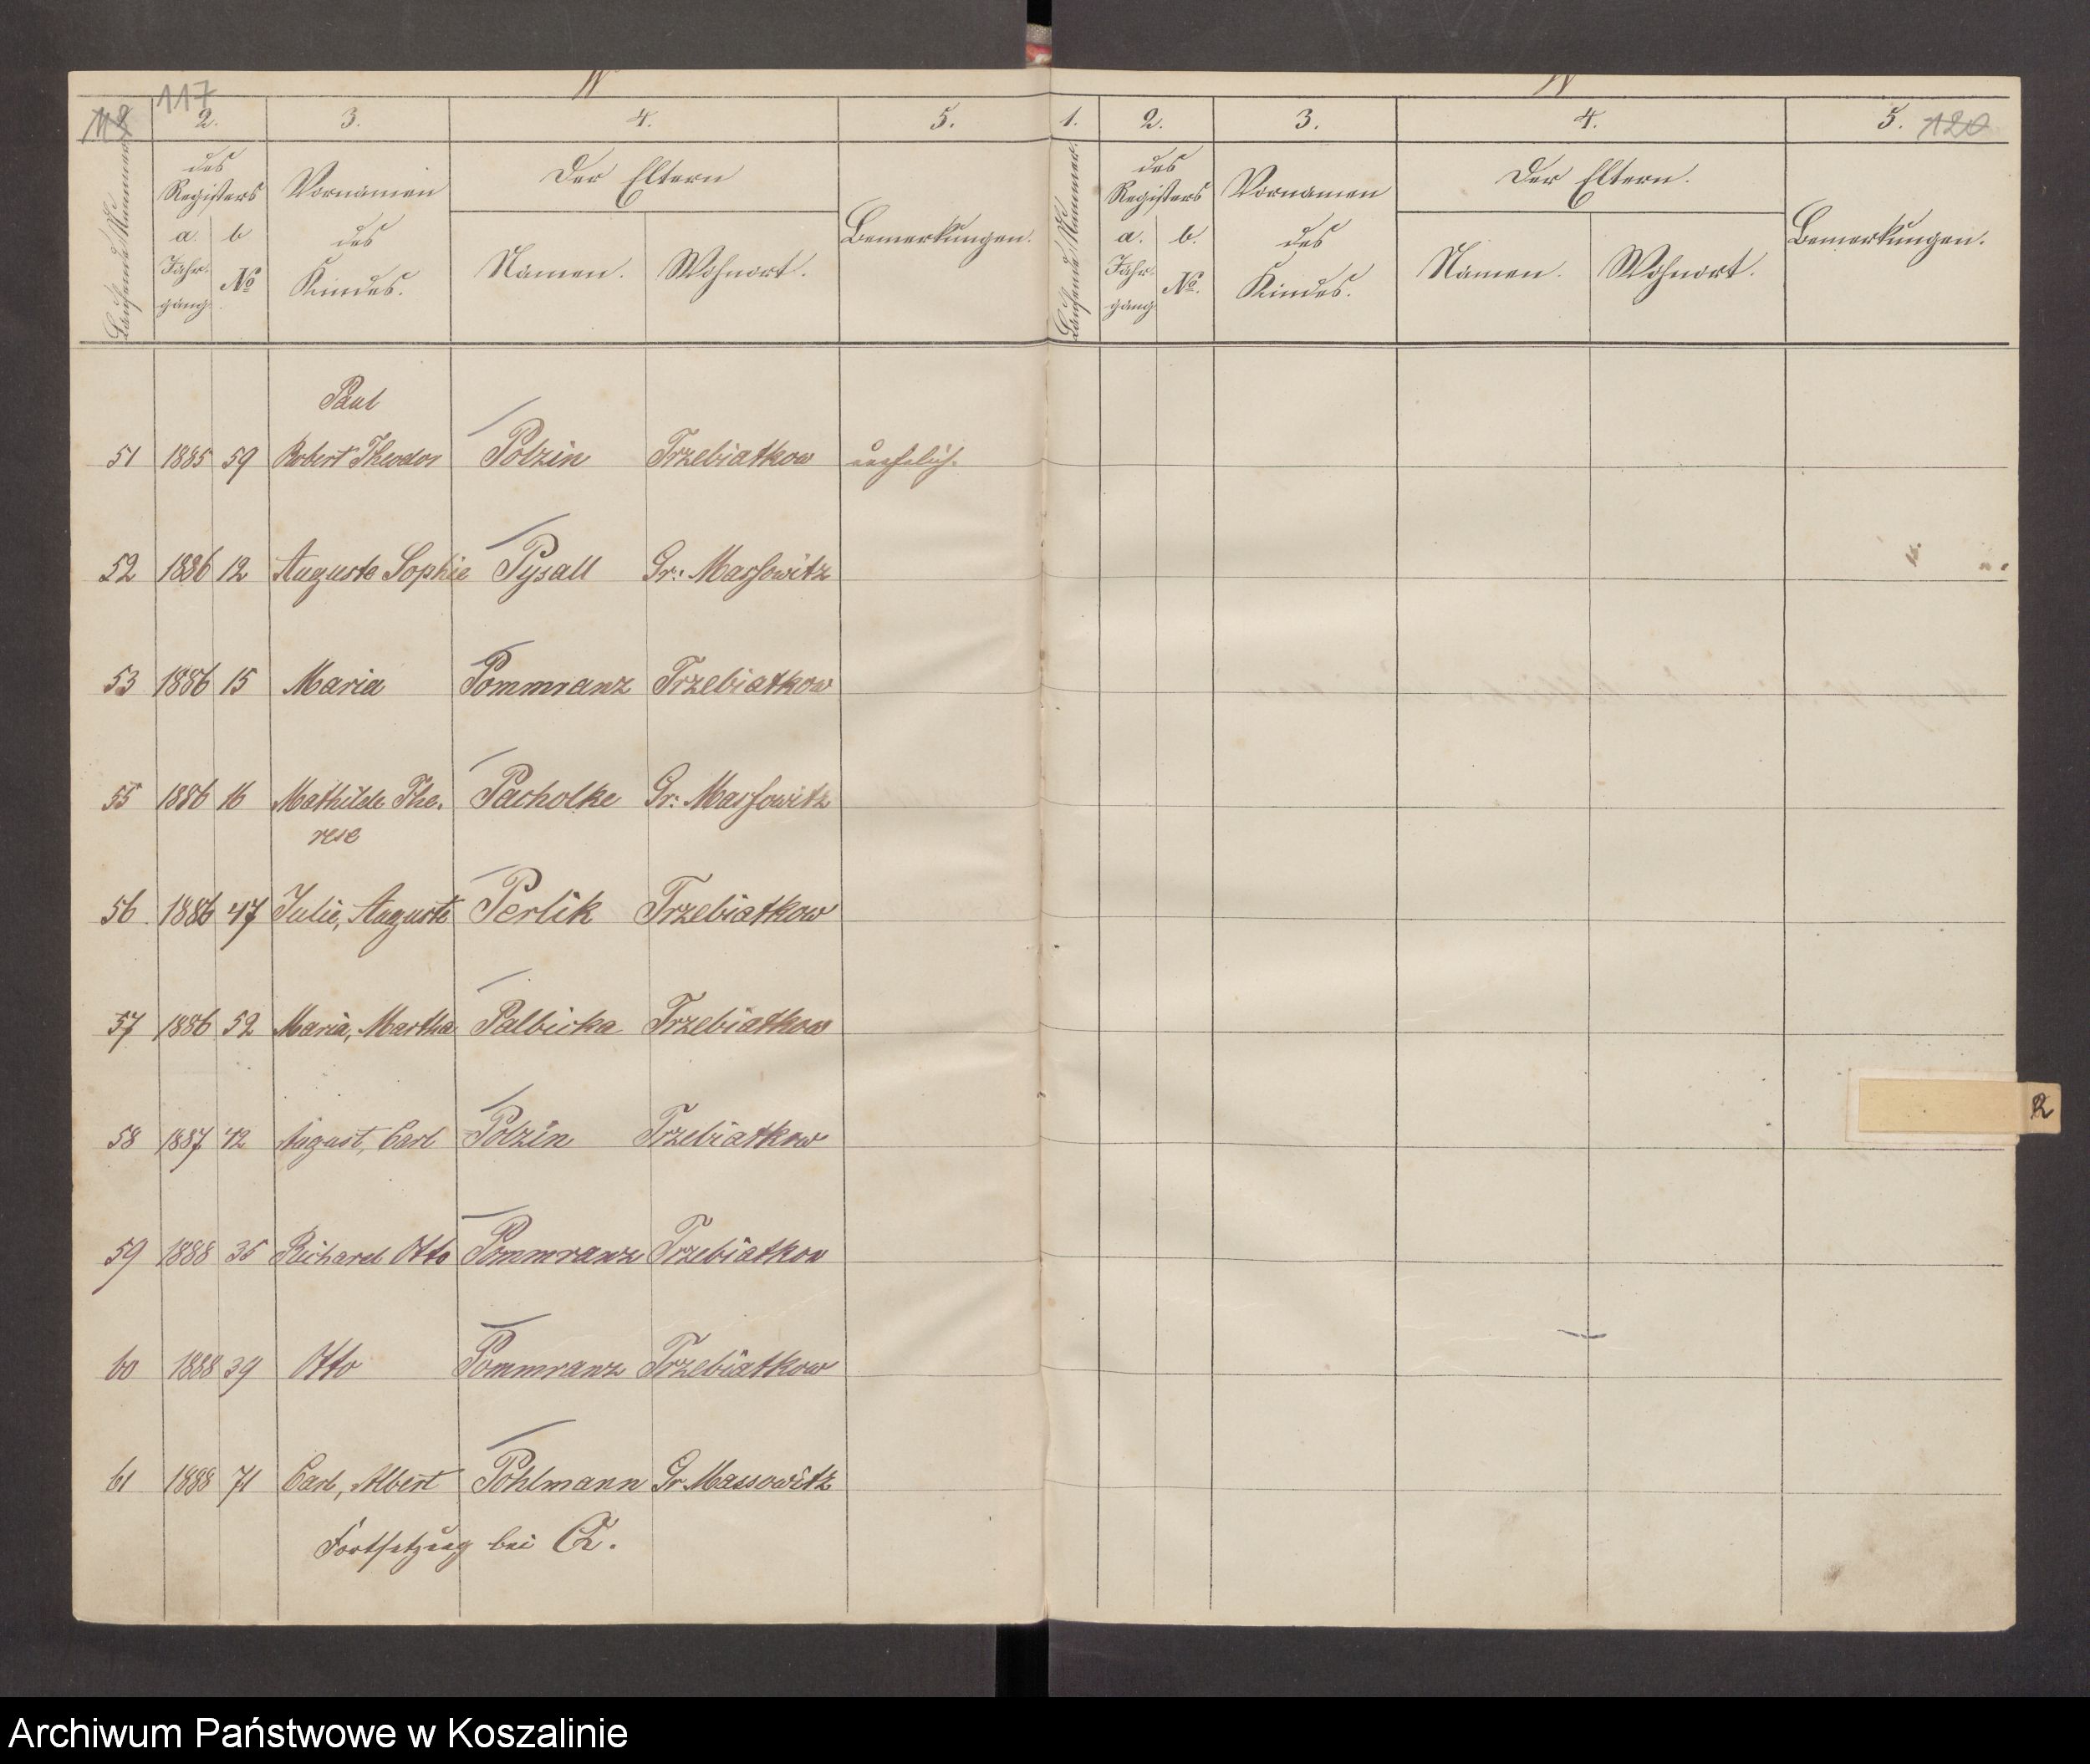 117
2. 3. 4. 5.
des Registers Vornamen des Kindes. Der Eltern Bemerkungen.
Laufende Nummer.
a. b
Jahrgang No
Namen. Wohnort.
Paul
51 1885 59 Robert Theodor Polzin Trzebiatkow unehelich.
52 1886 12 Auguste Sophie Pysall Gr: Massowitz
53 1886 15 Maria Pommranz Trzebiatkow
55 1886 16 Mathilde The- Pacholke Gr: Massowitz
rese
56 1886 47 Julie, Auguste Perlik Trzebiatkow
57 1886 52 Maria, Martha Palbicka Trzebiatkow
58 1887 42 August, Carl Polzin Trzebiatkow
59 1888 35 Richard Otto Pommranz Trzebiatkow
60 1888 39 Otto Pommranz Trzebiatkow
61 1888 71 Carl, Albert Pohlmann Gr Massowitz
Fortsetzung bei Q.
1. 2. 3. 4. 5. 120
des Registers Vornamen des Kindes. Der Eltern. Bemerkungen.
Laufende Nummer.
a. b.
Jahrgang No.
Namen. Wohnort.
R
Archiwum Państwowe w Koszalinie